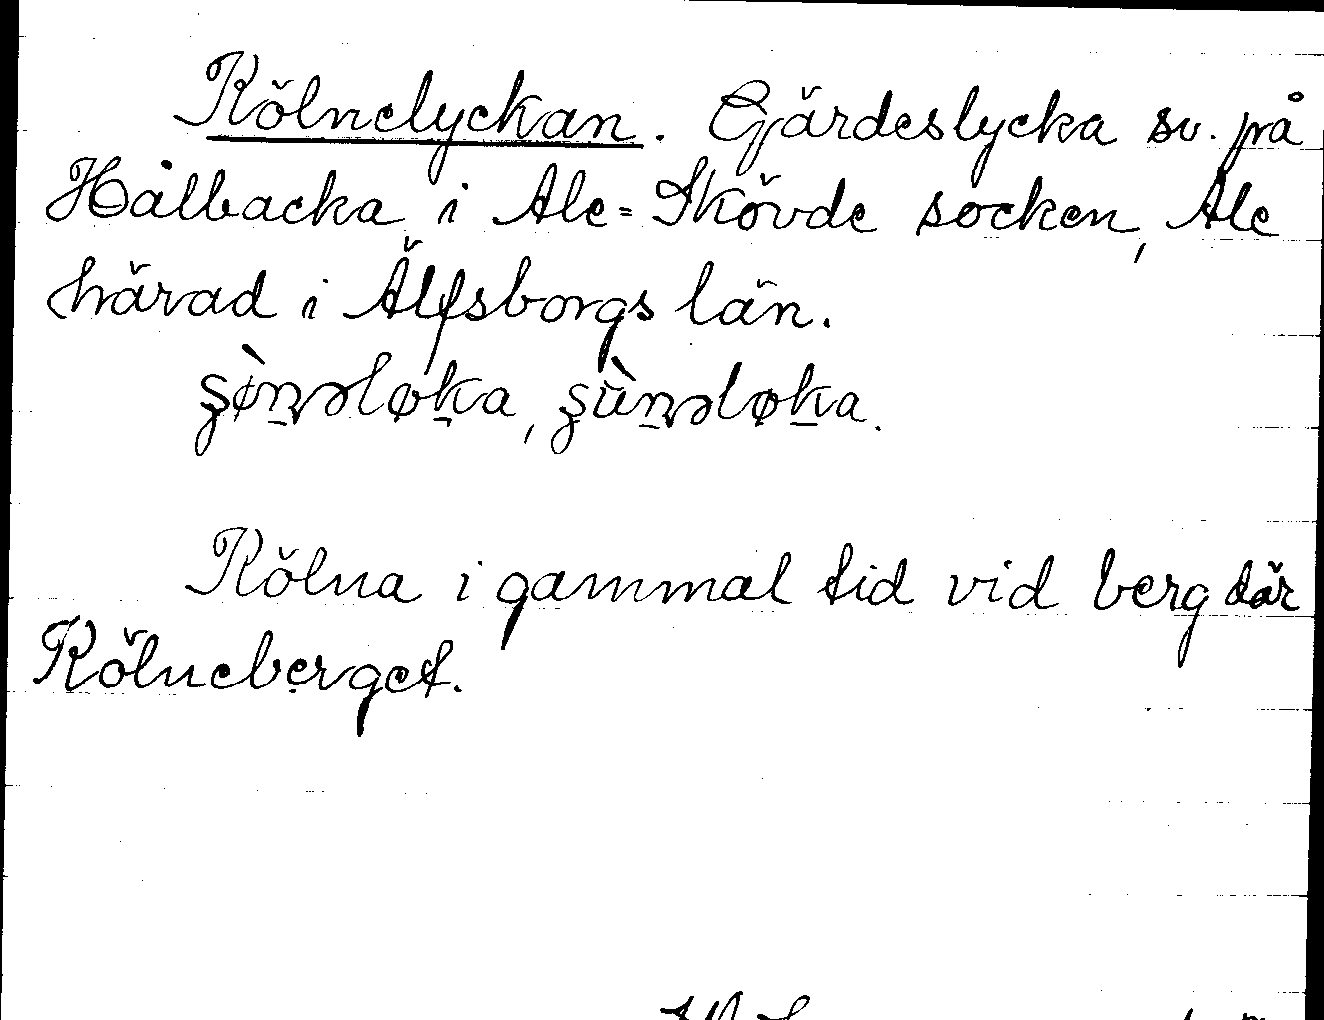 Kölnelyckan. Gjärdeslycka sv. på
Hålbacka i Ale-Skövde socken, Ale
härad i Älfsborgs län.
Kölna i gammal tid vid berg där
Kölneberget.